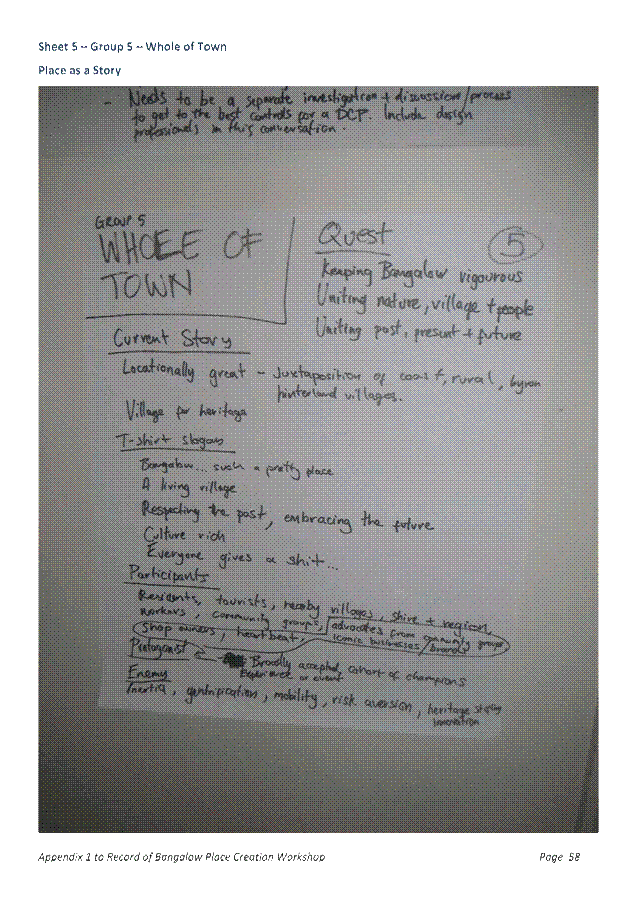 Sheet 5 – Group 5 – Whole of Town
Place as a Story
- Needs to be a separate investigation + discussion/process
to get to the best controls for a DCP. Include design
professionals in this conversation.
GROUP 5
WHOLE OF
TOWN
Quest
5
Keeping Bangalow vigourous
Uniting nature, village + people
Uniting past, present + future
Current Story
Locationally great - Juxtaposition of coast, rural, byron
hinterland villages.
Village for heritage
T-shirt slogans
Bangalow... such a pretty place
A living village
Respecting the past, embracing the future
Culture rich
Everyone gives a shit...
Participants
Residents, tourists, nearby villages, shire + region,
workers, community groups, advocates from community groups
Shop owners, heartbeat, iconic businesses/brands
Protagonist
Broadly accepted, cohort of champions
Experience or event
Enemy
Inertia, gentrification, mobility, risk aversion, heritage
innovation
Appendix 1 to Record of Bangalow Place Creation Workshop
Page 58